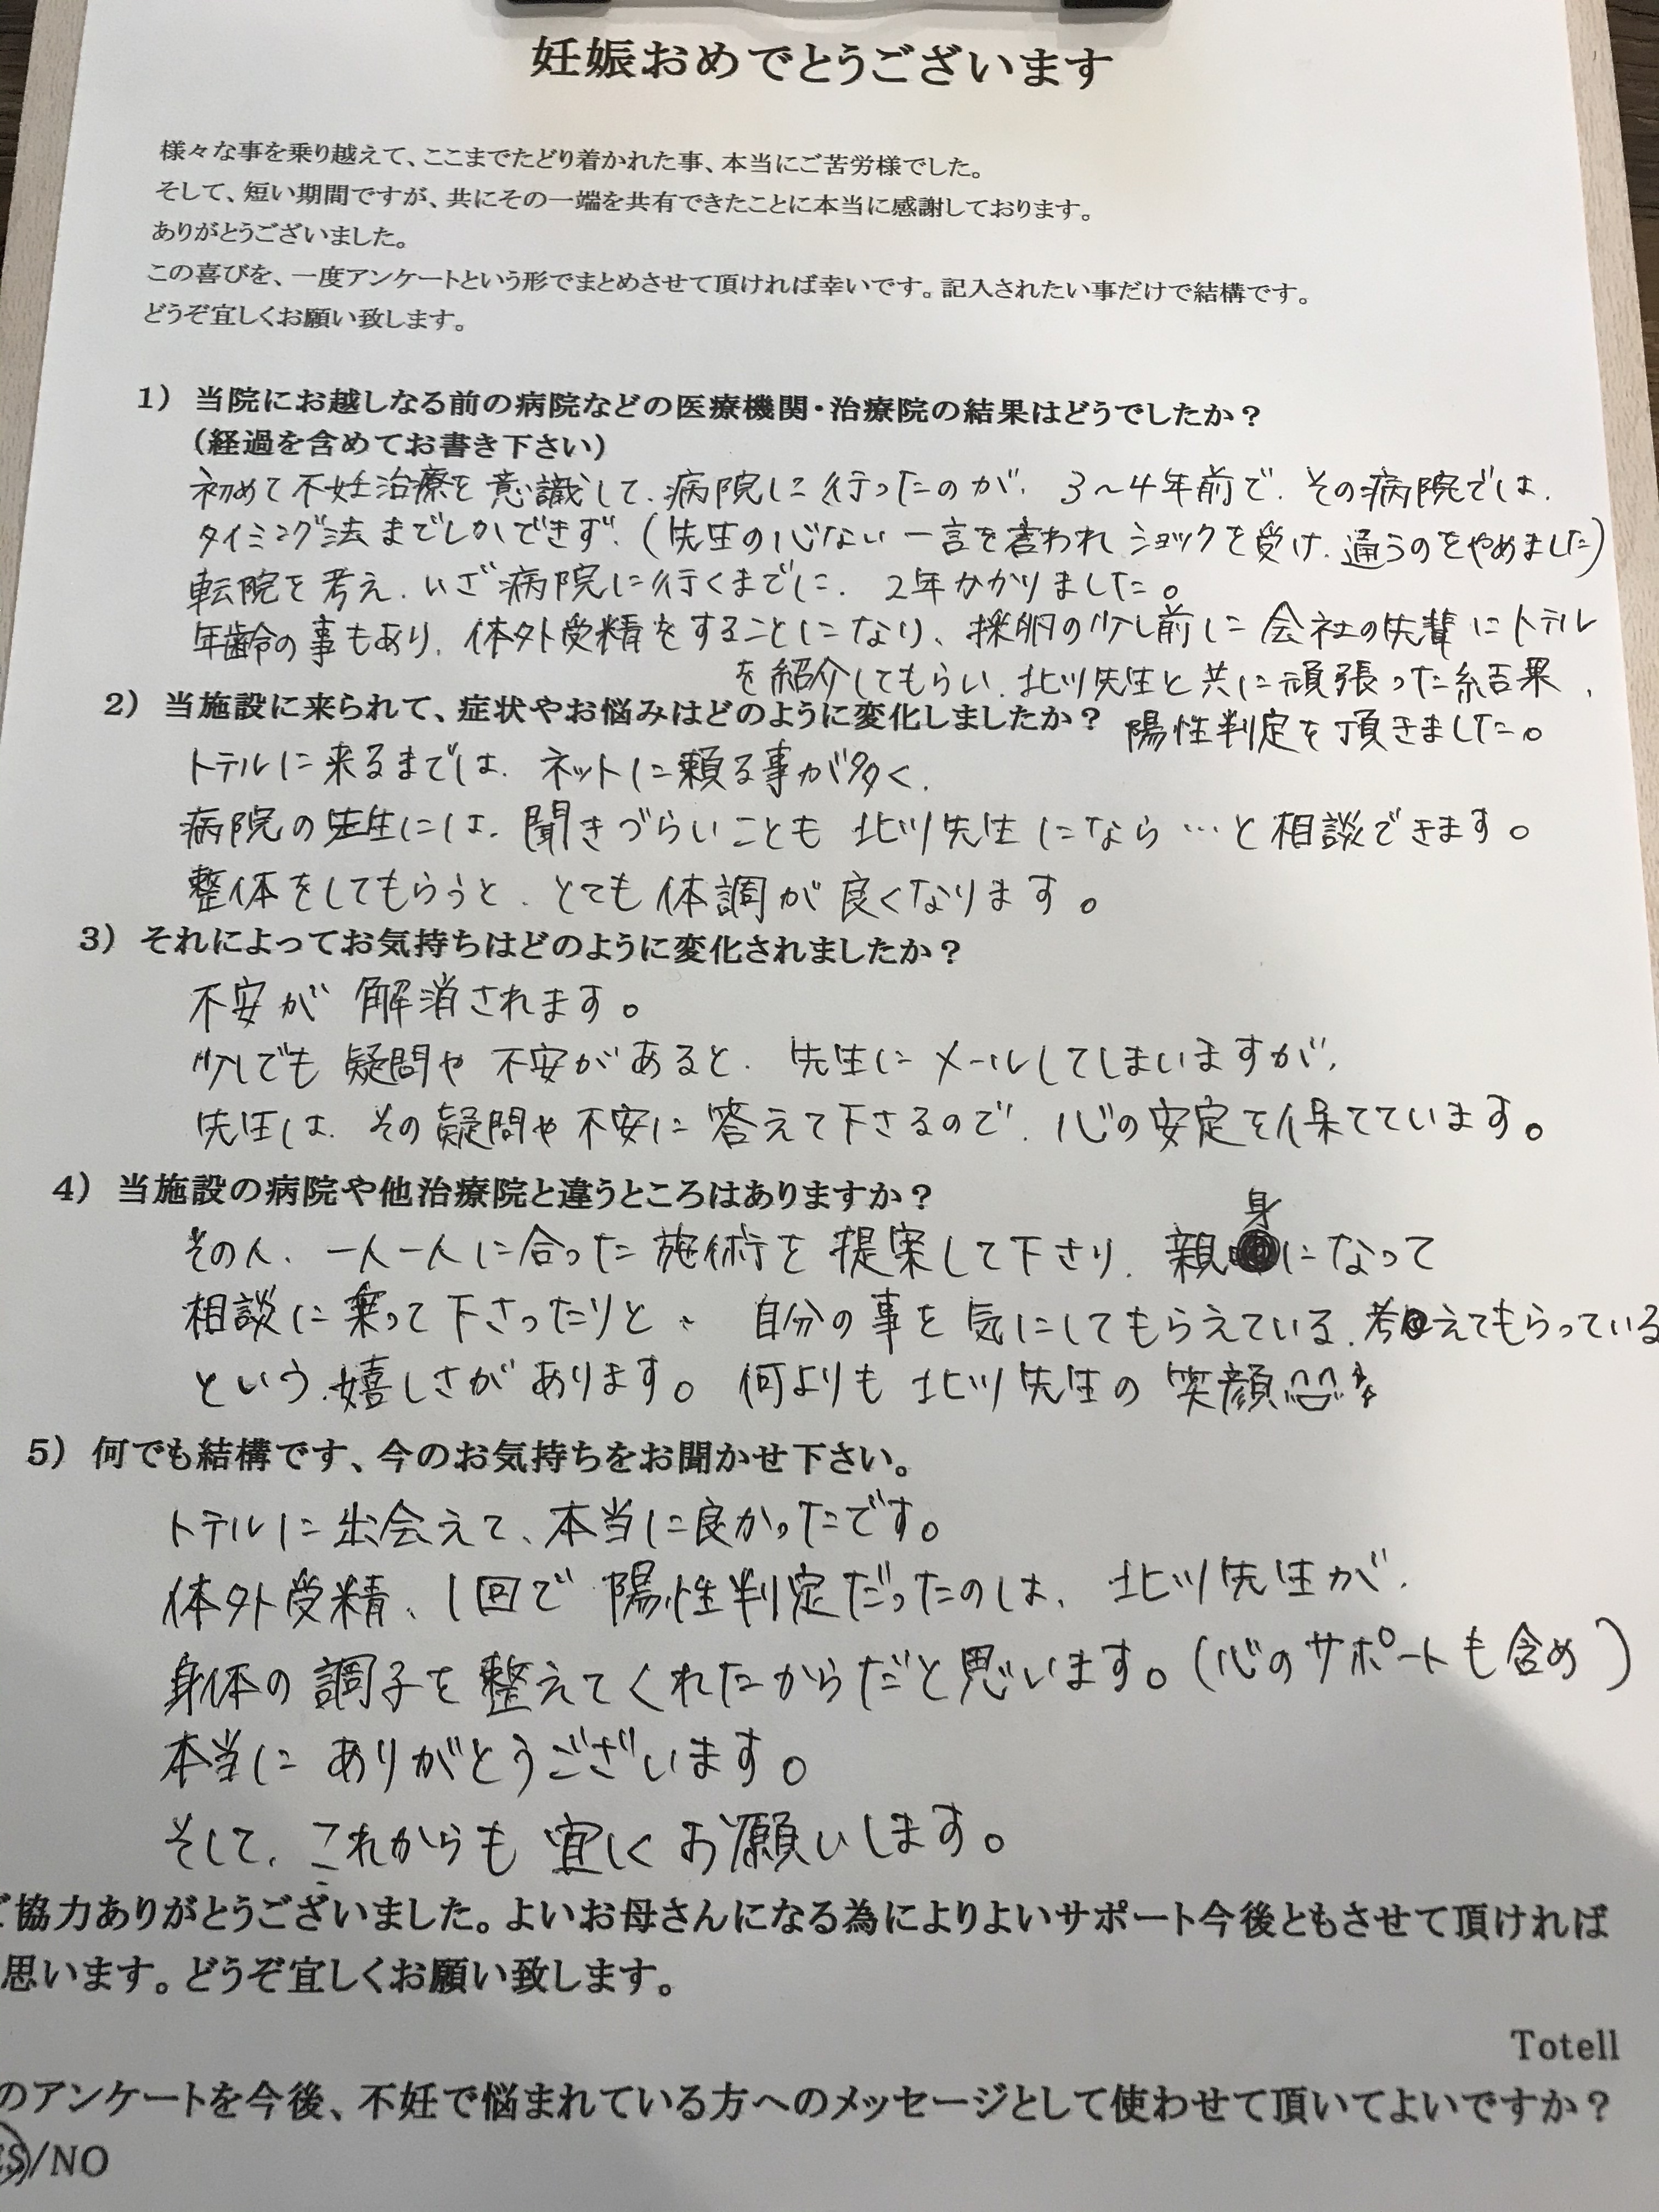 妊娠おめでとうございます
様々な事を乗り越えて、ここまでたどり着かれた事、本当にご苦労様でした。
そして、短い期間ですが、共にその一端を共有できたことに本当に感謝しております。
ありがとうございました。
この喜びを、一度アンケートという形でまとめさせて頂ければ幸いです。記入されたい事だけで結構です。
どうぞ宜しくお願い致します。
1）当院にお越しなる前の病院などの医療機関・治療院の結果はどうでしたか？
（経過を含めてお書き下さい）
初めて不妊治療を意識して、病院に行ったのが、3〜4年前で、その病院では、
タイミング法までしかできず、（先生の心ない一言を言われショックを受け、通うのをやめました）
転院を考え、いざ病院に行くまでに、2年かかりました。
年齢の事もあり、体外受精をすることになり、採卵の少し前に会社の先輩にトテル
を紹介してもらい、北川先生と共に頑張った結果、
陽性判定を頂きました。
2）当施設に来られて、症状やお悩みはどのように変化しましたか？
トテルに来るまでは、ネットに頼る事が多く、
病院の先生には、聞きづらいことも北川先生になら…と相談できます。
整体をしてもらうと、とても体調が良くなります。
3）それによってお気持ちはどのように変化されましたか？
不安が解消されます。
少しでも疑問や不安があると、先生にメールしてしまいますが、
先生は、その疑問や不安に答えて下さるので、心の安定を保てています。
4）当施設の病院や他治療院と違うところはありますか？
その人、一人一人に合った施術を提案して下さり、親身になって
相談に乗って下さったりと、自分の事を気にしてもらえている、考えてもらっている
という、嬉しさがあります。何よりも北川先生の笑顔
5）何でも結構です、今のお気持ちをお聞かせ下さい。
トテルに出会えて、本当に良かったです。
体外受精、1回で陽性判定だったのは、北川先生が、
身体の調子を整えてくれたからだと思います。（心のサポートも含め）
本当にありがとうございます。
そして、これからも宜しくお願いします。
ご協力ありがとうございました。よいお母さんになる為によりよいサポート今後ともさせて頂ければ
思います。どうぞ宜しくお願い致します。
Totell
のアンケートを今後、不妊で悩まれている方へのメッセージとして使わせて頂いてよいですか？
ES/NO